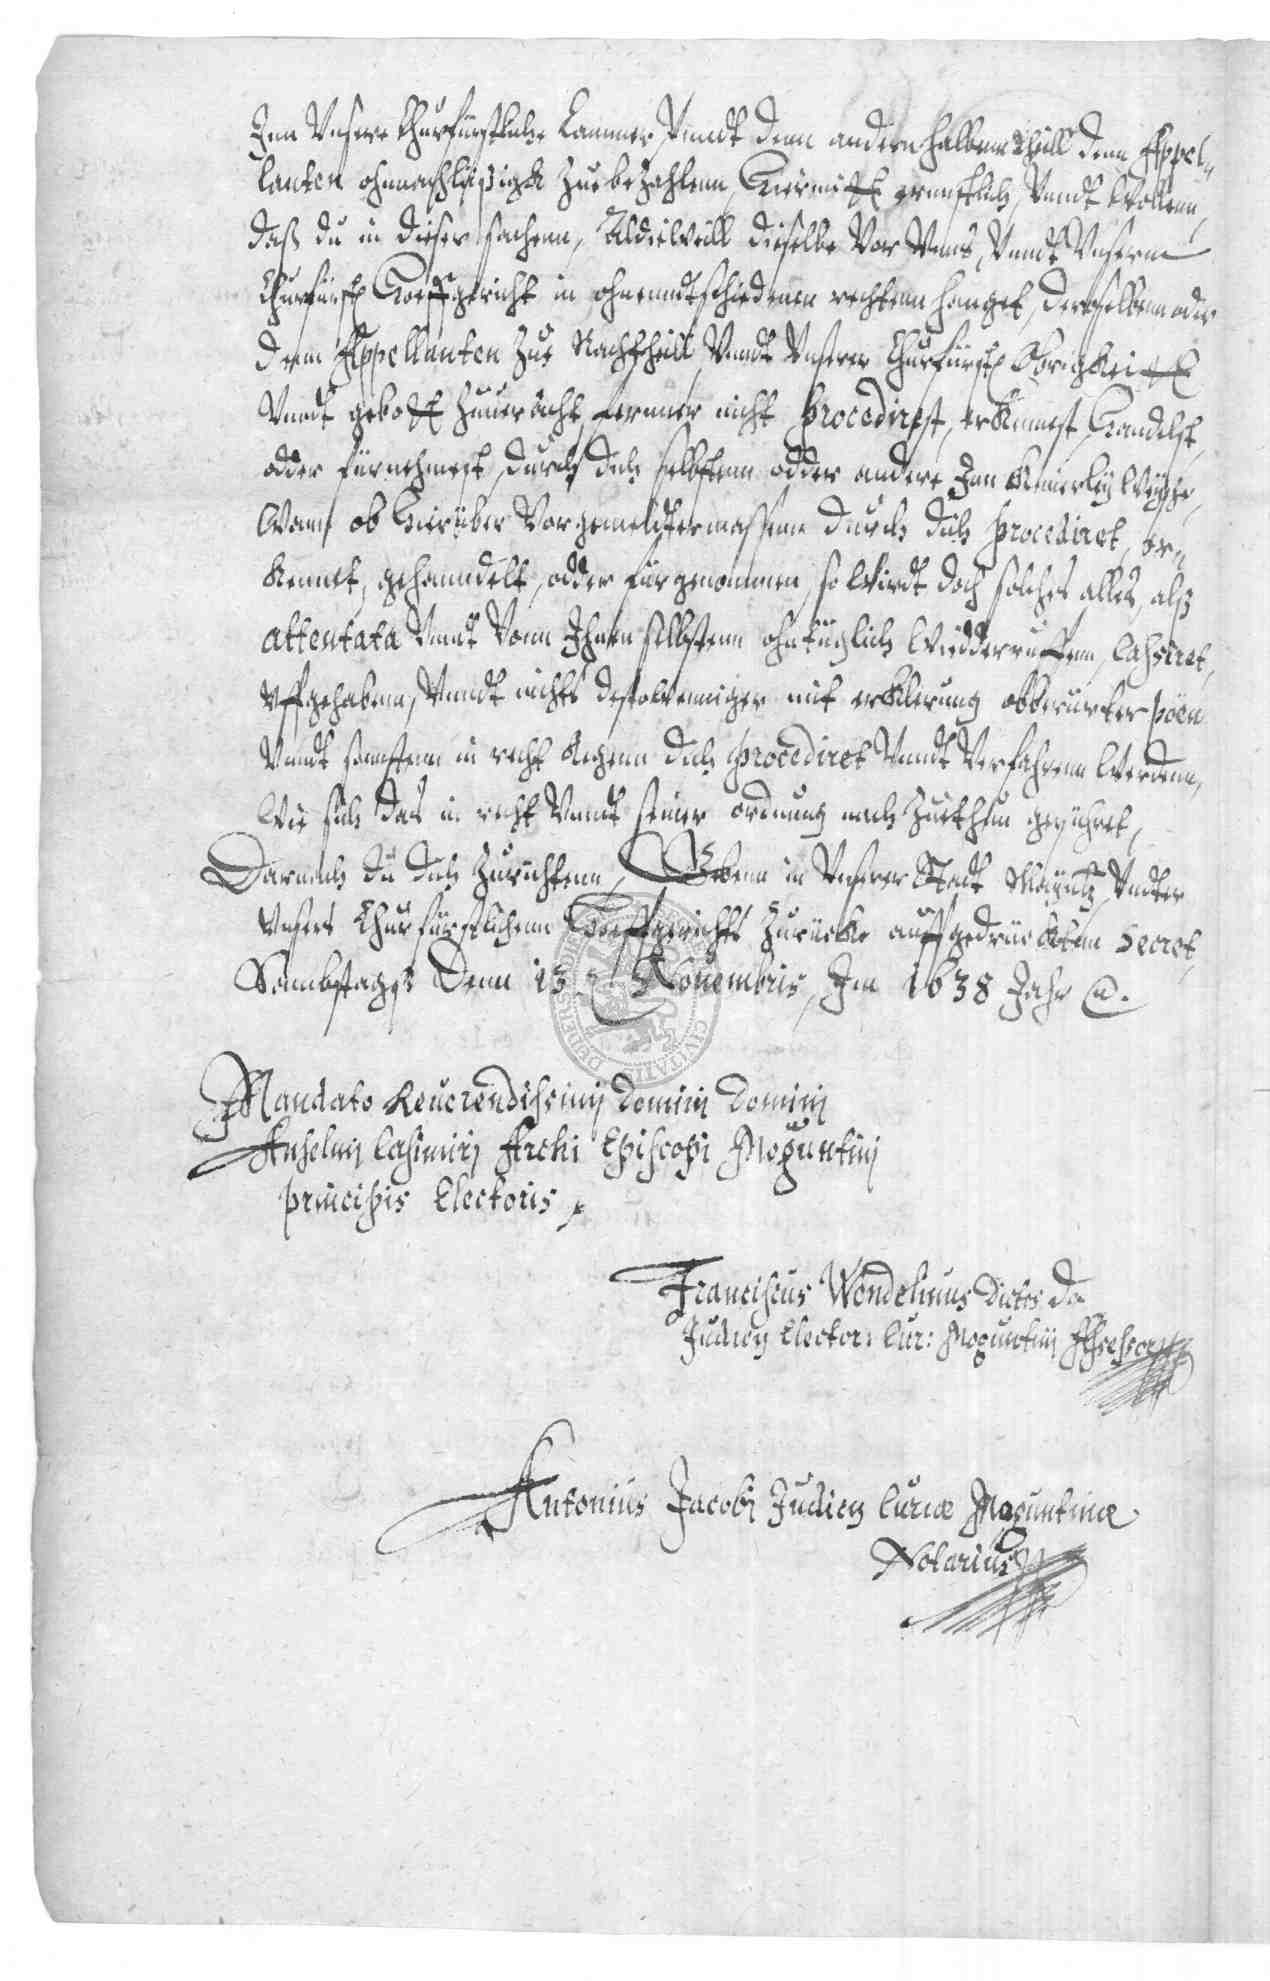 Inn Vnsere Churfürstliche Cammer, Vnndt denn andern halbenn theill denn Appel-
lanten ohnnachläßigk zue bezahlenn, Hiermitt ernnstlich, Vnndt Wollenn,
daß du in dieser sachenn, Aldieweill dieselbe Vor Vnns, Vnndt Vnserm
Churfürstl Hoeffgericht in ohnenndtschiedenen rechtenn hanget, derselbenn oder
denn Appellanten zue Nachtheill Vnndt Vnserer Churfürstl Obrigkeitt
Vnndt gebott zuueracht, ferner nicht procedirest, erkennest, Handelst,
odder fürnehmest, durch dich selbstenn odder andere Inn keinerley Weysse,
Wann ob Hierüber Vorgemeldtermassenn durch dich procediret, er-
kennet, gehanndelt, odder fürgenommen, so Wirdt doch solches alles, alß
attentata Vnndt Vonn Ihnen selbstenn ohntüglich Wiedderruffenn, Cassiret,
Vffgehabenn, Vnndt nichts destoweniger mit erklerung obberürter pöen
Vnndt sonnstenn in recht gegenn dich procediret Vnndt Verfahrenn Werdenn,
Wie sich das in recht Vnndt seiner ordnung nach zuethun gepühret,
Darnach du dich zurichtenn, Gebenn in Vnserer Stadt Mayntz Vndter
Vnsers Churfürstlichenn Hoeffgerichts zurücke auffgedrücktem Secret,
Sambstages Denn 13 Nouembris, Im 1638 Jahr
Mandato Reuerendissimj Dominj Dominj
Anselmj Casimirj Archi Episcopi Moguntinj
principis Electoris
Franciscus Wendelinus
Judicij Elector: Cur: Moguntinj Assessor
Antonius Jacobj Judicij Curiæ Moguntinæ
Notarius
CIVITATIS DUDERS